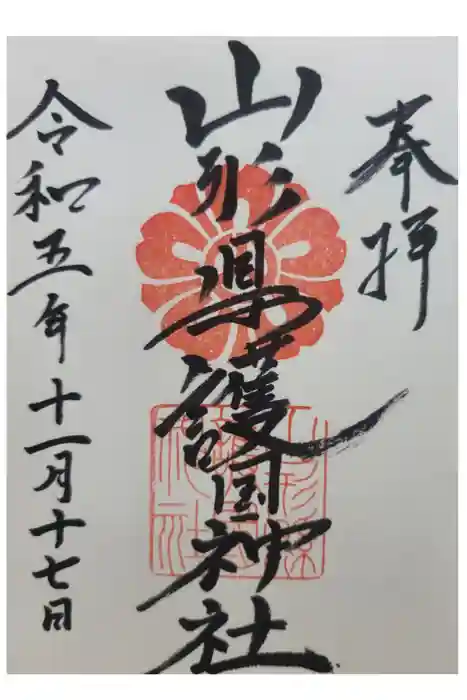 奉拝
山形県護国神社
令和五年十一月十七日